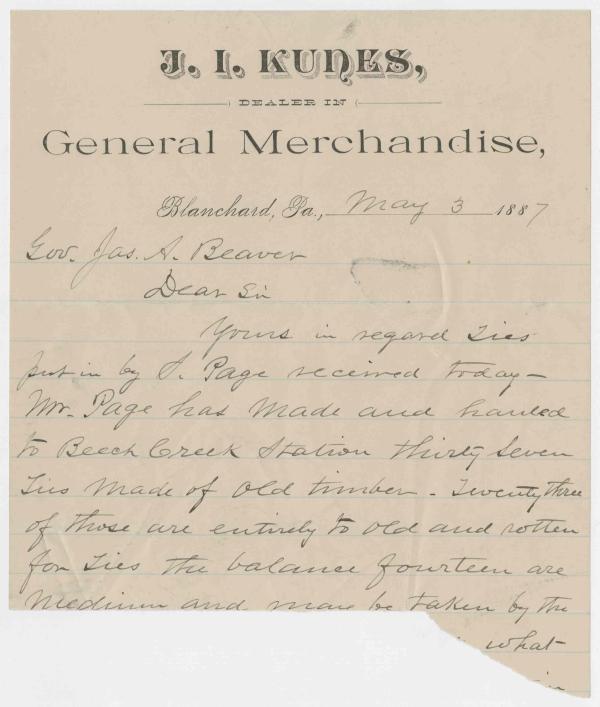 J. I. KUNES,
DEALER IN
General Merchandise,
Blanchard, Pa., May 3 1887
Gov. Jas. A. Beaver
Dear Sir
Yours in regard Ties
put in by S. Page received today—
Mr. Page has Made and hauled
to Beech Creek Station thirty Seven
Ties Made of old timber - Twenty three
of those are entirely to old and rotten
for Ties the balance fourteen are
Medium and may be taken by the
what